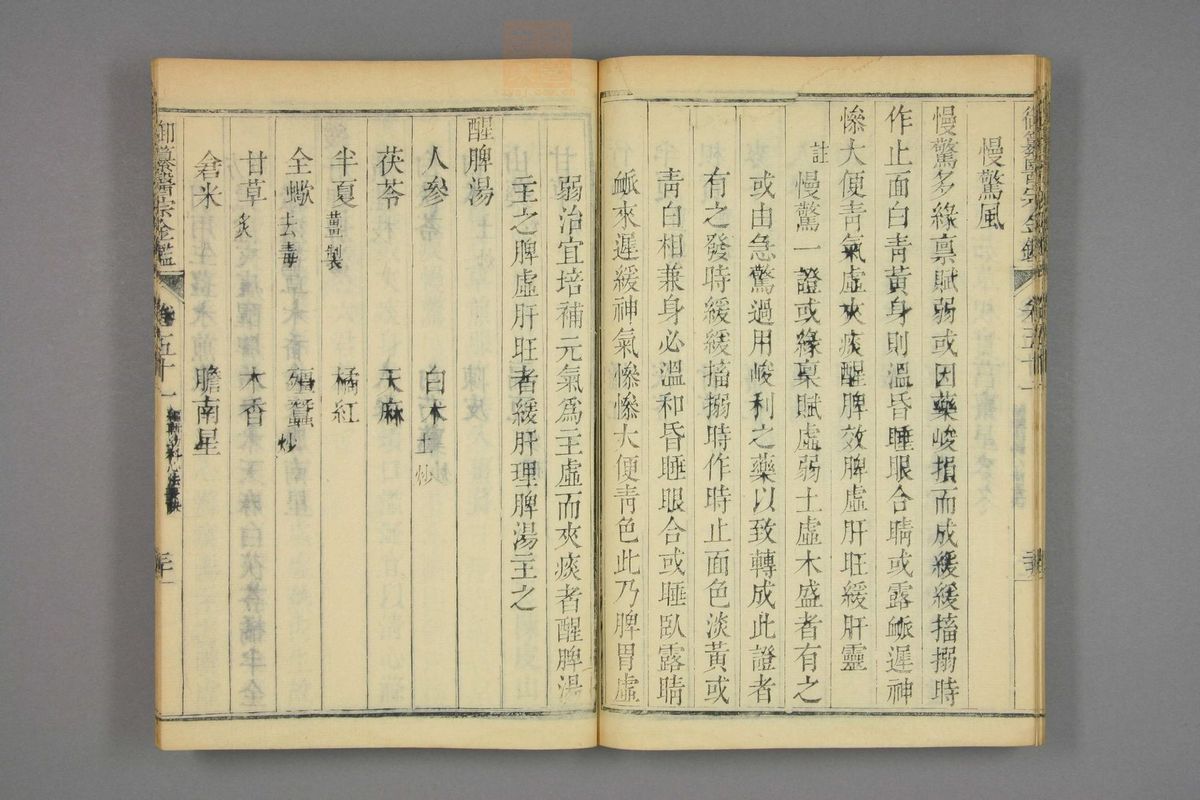 慢驚風
慢驚多緣稟賦弱或因藥峻損而成緩緩搐搦時
作止面白青黃身則溫昏睡眼合睛或露脈遲神
慘大便青氣虛夾痰醒脾效脾虛肝旺緩肝靈
註 慢驚一證或緣稟賦虛弱土虛木盛者有之
或由急驚過用峻利之藥以致轉成此證者
有之發時緩緩搐搦時作時止面色淡黃或
靑白相兼身必溫和昏睡眼合或睡臥露睛
脈來遲緩神氣慘慘大便靑色此乃脾胃虛
弱治宜培補元氣為主虛而夾痰者醒脾湯
主之脾虛肝旺者緩肝理脾湯主之
醒脾湯
人參 白朮土炒
茯苓 天麻
半夏薑製 橘紅
全蠍去毒 殭蠶炒
甘草炙 木香
倉米 膽南星
御纂醫宗金鑑 卷五十一